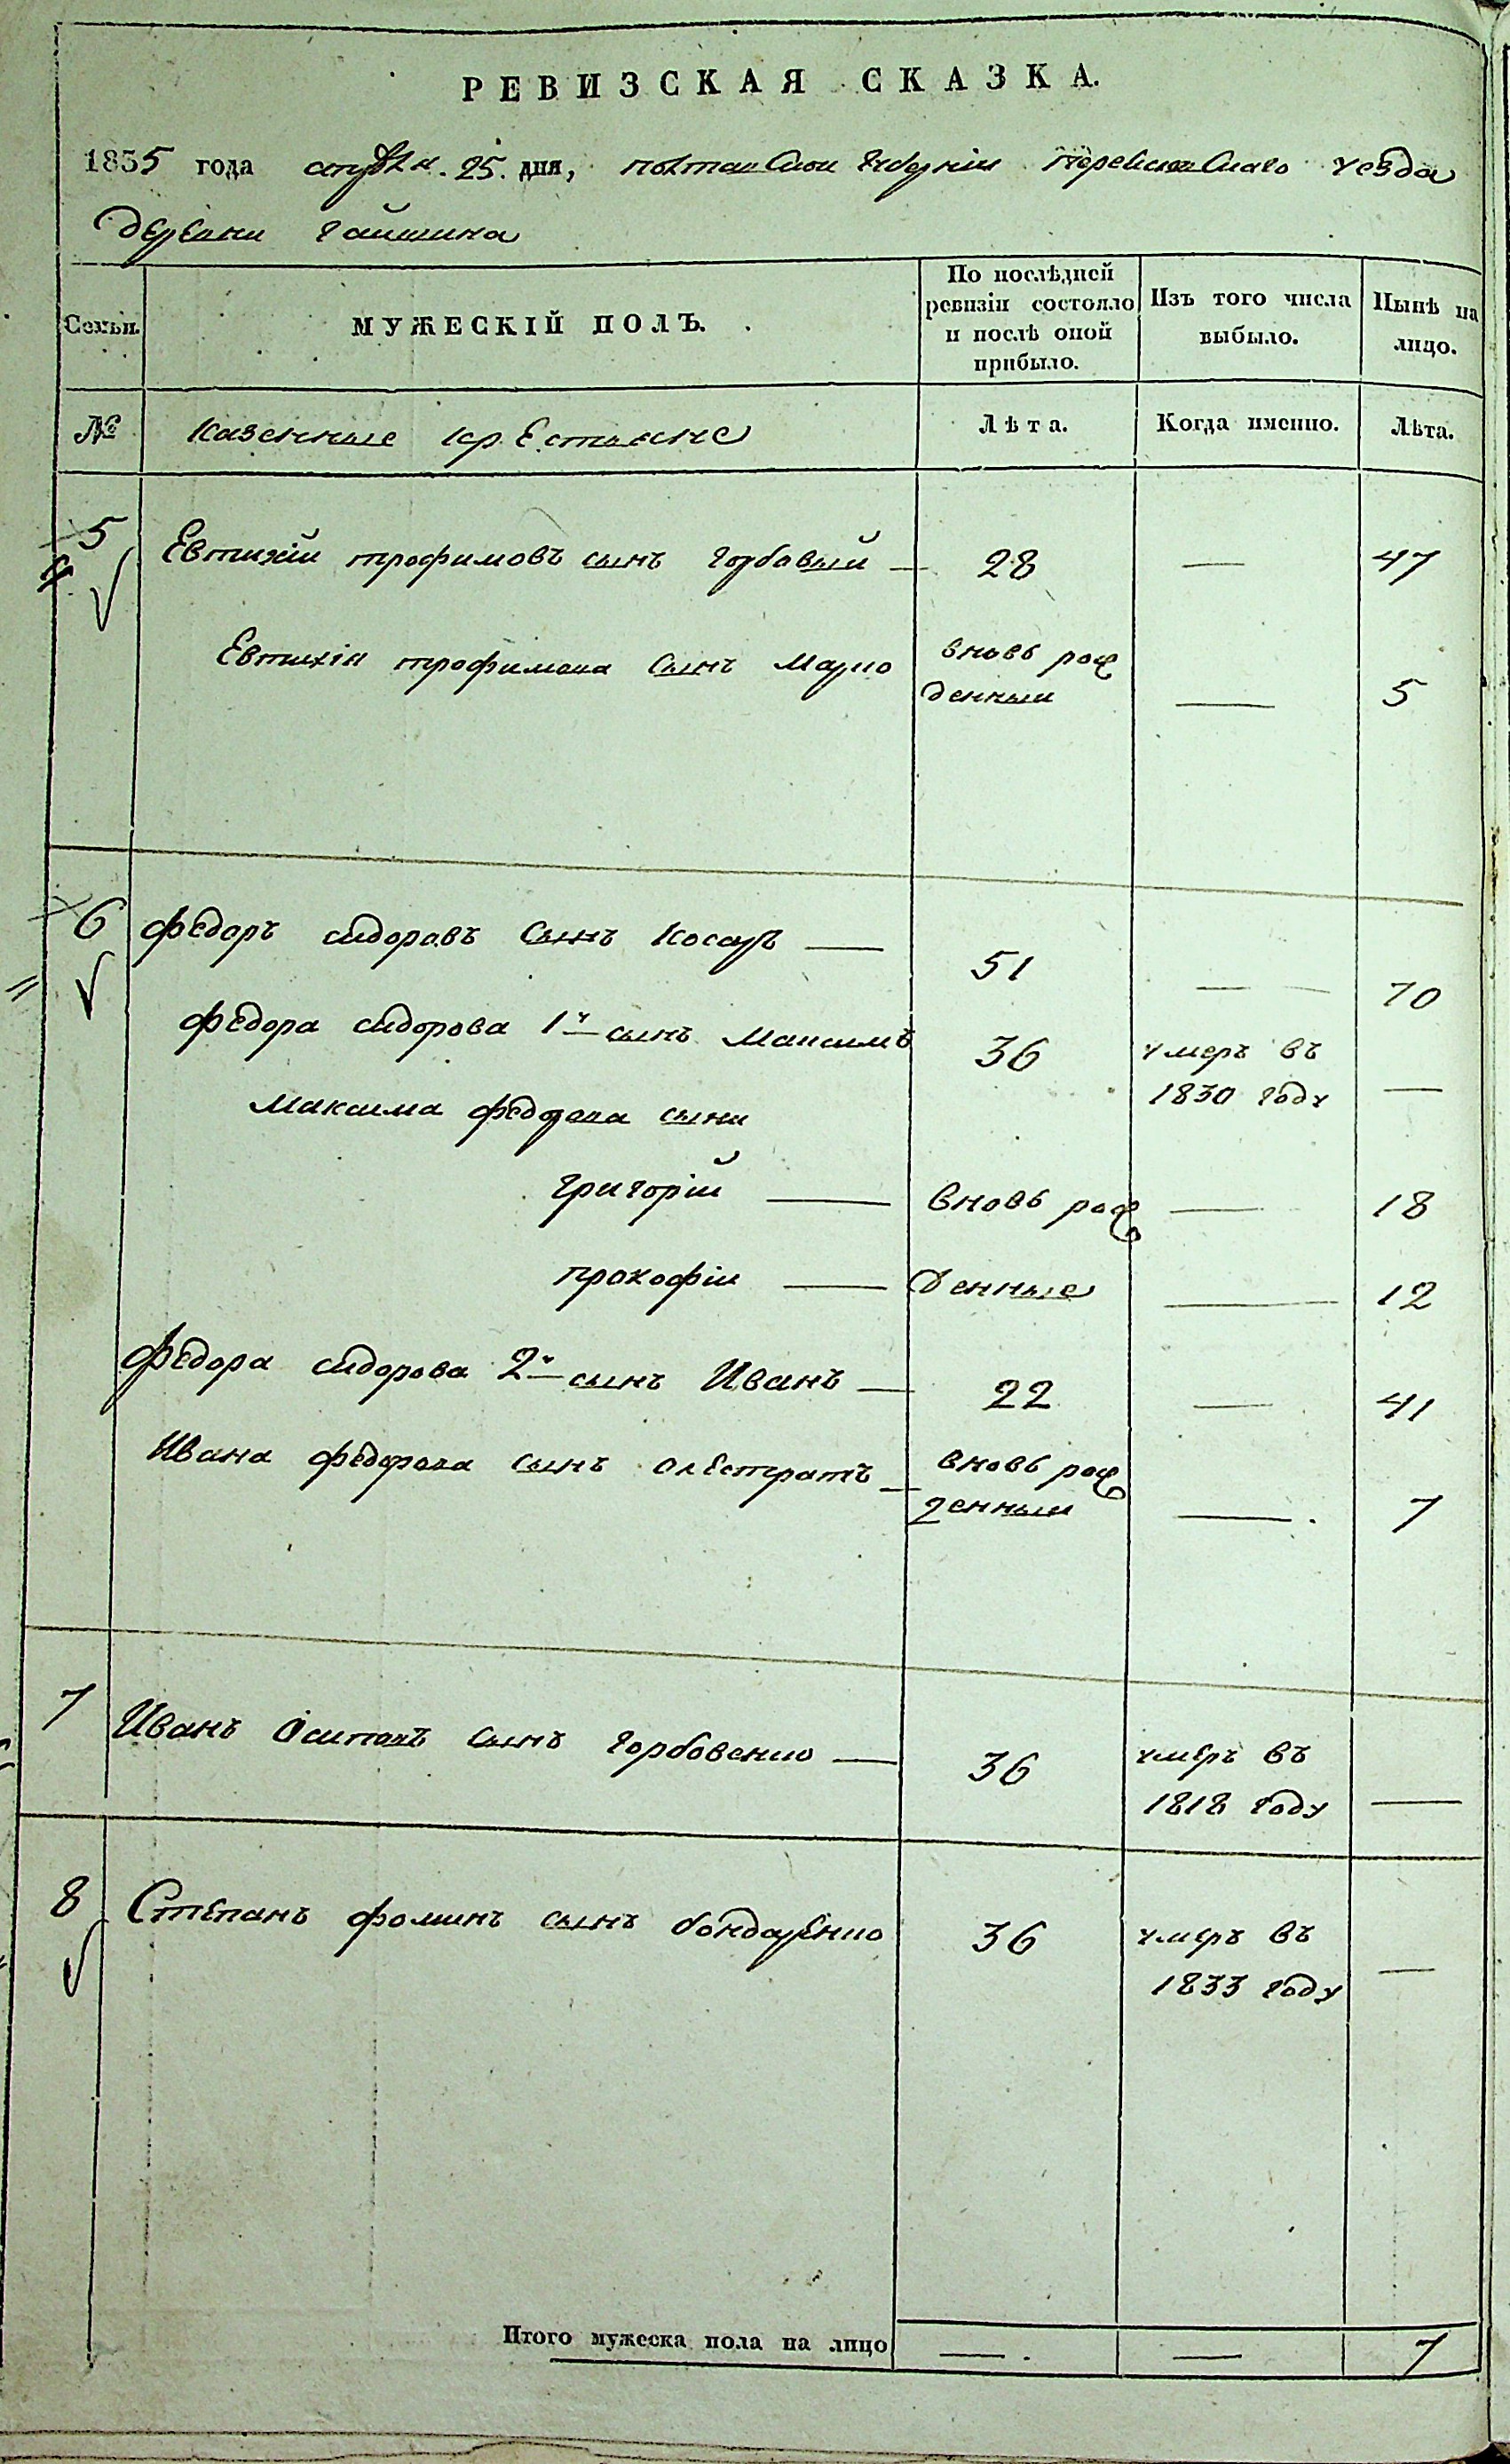 РЕВИЗСКАЯ СКАЗКА.
1835 года 25. дня, полтавской губерніи переяславскаго уезда
деревни гайшина
Семьи. МУЖЕСКІЙ ПОЛЪ. По послѣдней ревизіи состояло и послѣ оной прибыло. Изъ того числа выбыло. Нынѣ на лицо.
№ казенные крестьяне Лѣта. Когда именно. Лѣта.
5 Евтихій трофимовъ сынъ — 28 — 47
Евтихія трофимова сынъ марко вновь рож
денный — 5
6 федоръ сидоровъ сынъ косаръ — 51 — 70
федора сидорова 1й сынъ максимъ 36 умеръ въ
1830 году —
максима федорова сыни
григорій — вновь рож — 18
прокофій — денные — 12
федора сидорова 2й сынъ Иванъ — 22 — 41
Ивана федорова сынъ алестратъ — вновь рож
денный — 7
7 Иванъ Осиповъ сынъ горбовенко — 36 умеръ въ
1818 году —
8 Степанъ фоминъ сынъ бондаренко 36 умеръ въ
1833 году —
Итого мужеска пола на лицо — — 7